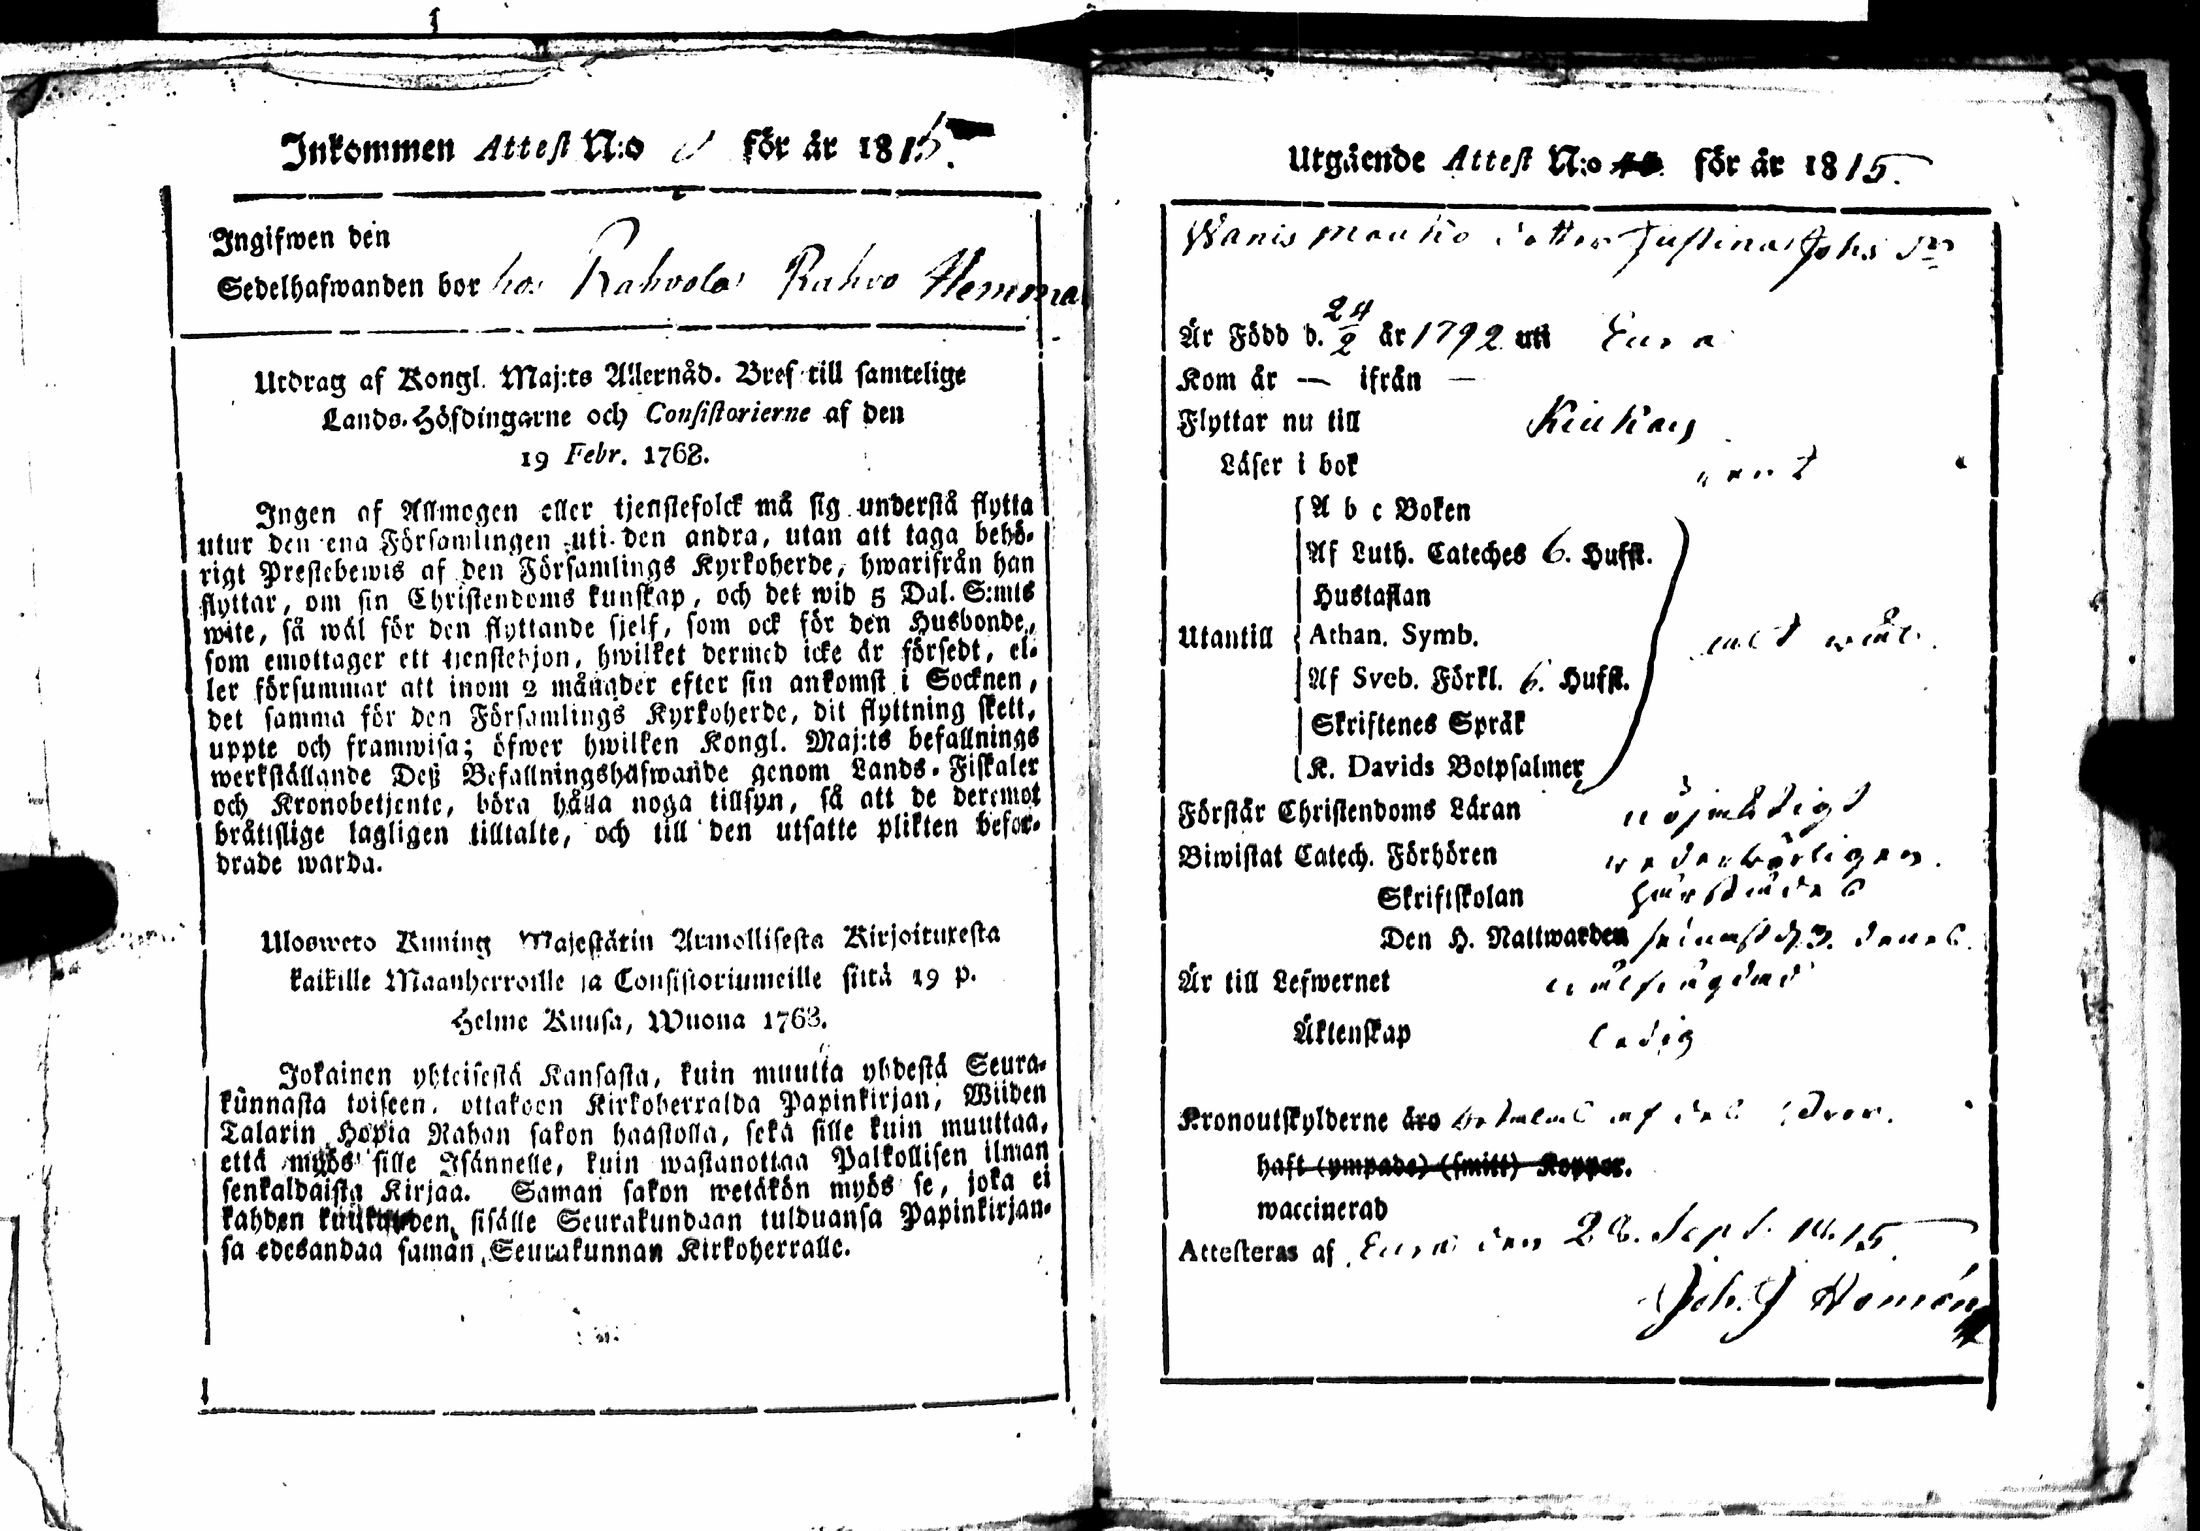 Inkommen Attest N:o för år 1815.
Ingifwen den
Sedelhafwanden bor hos Rahvola Rahvo Hemma
Utdrag af Kongl. Maj:ts Allernåd. Bref till samtelige
Lands-Höfdingarne och Consistorierne af den
19 Febr. 1768.
Ingen af Allmogen eller tjenstefolck må sig understå flytta
utur den ena Församlingen uti den andra, utan att taga behö-
rigt Prestebewis af den Församlings Kyrkoherde, hwarifrån han
flyttar, om sin Christendoms kunskap, och det wid 5 Dal. S:mts
wite, så wäl för den flyttande sjelf, som ock för den Husbonde,
som emottager ett tjenstehjon, hwilket dermed icke är försedt, el-
ler försummar att inom 2 månader efter sin ankomst i Socknen,
det samma för den Församlings Kyrkoherde, dit flyttning skett,
uppte och framwisa; öfwer hwilken Kongl. Maj:ts befallnings
werkställande Deß Befallningshafwande genom Lands-Fiskaler
och Kronobetjente, böra hålla noga tillsyn, så att de deremot
bråttslige lagligen tilltalte, och till den utsatte plikten befor-
drade warda.
Ulosweto Kuning Majestätin Armollisesta Kirjoituxesta
kaikille Maanherroille ja Consistoriumeille siitä 19 p.
Helme Kuusa, Wuona 1768.
Jokainen yhteisestä Kansasta, kuin muutta yhdestä Seura-
kunnasta toiseen, ottakoon Kirkoherralda Papinkirjan, Wiiden
Talarin Hopia Rahan sakon haastolla, sekä sille kuin muuttaa,
että myös sille Isännelle, kuin wastanottaa Palkollisen ilman
senkaldaista Kirjaa. Saman sakon wetäkön myös se, joka ei
kahden kuukauden sisälle Seurakundaan tulduansa Papinkirjan-
sa edesandaa saman Seurakunnan Kirkoherralle.
Utgående Attest N:o för år 1815.
Wanis Mouko dotter Justina Johs dr
Är Född d. 24/2 år 1792 uti Eura
Kom år — ifrån —
Flyttar nu till Kiukais
Läser i bok rent
A b c Boken
Af Luth. Cateches 6. Hufst.
Hustaflan
Utantill Athan. Symb. alt wäl.
Af Sveb. Förkl. 6. Hufst.
Skriftenes Språk
K. Davids Botpsalmer
Förstår Christendoms Läran nöjaktigt
Biwistat Catech. Förhören wederbörligen.
Skriftskolan härstädes
Den H. Nattwarden senast d. 3. denes.
Är till Lefwernet wälfrägdad
Äktenskap ledig
Kronoutskylderne äro betalde af
haft (ympade) (smitt) Koppor.
waccinerad
Attesteras af Eura den 28. Sept. 1815.
Joh. J Homén